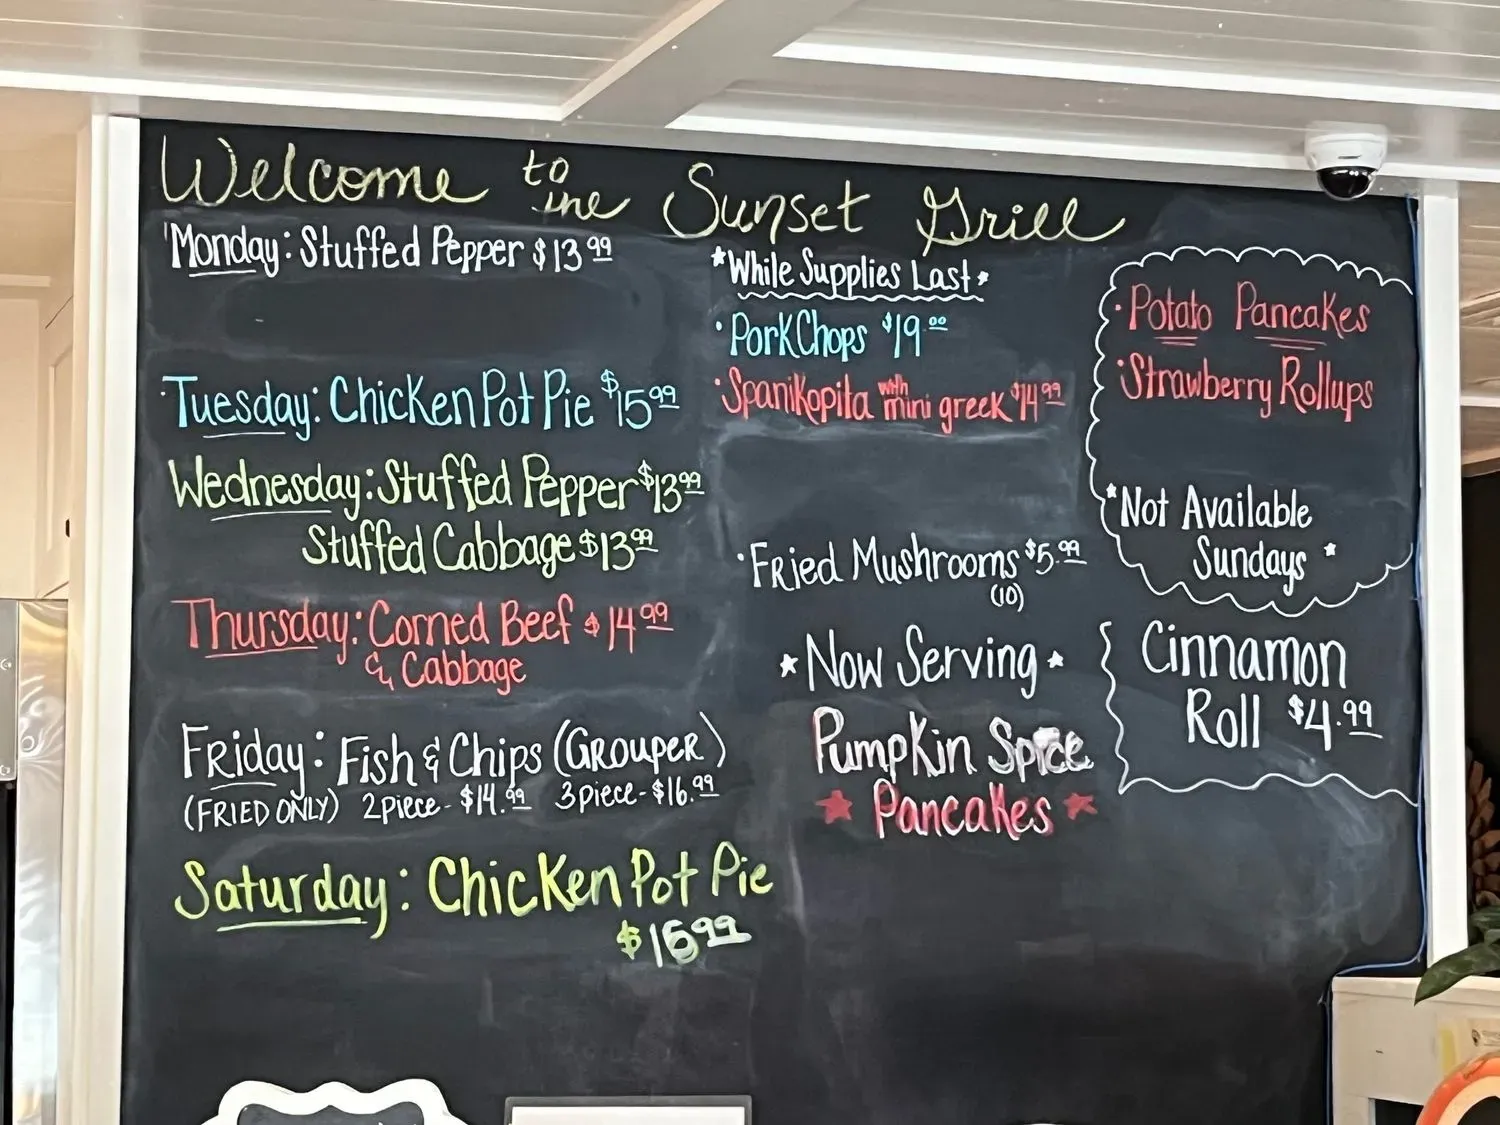 Welcome to the Sunset Grill
Monday: Stuffed Pepper $13.99
Tuesday: Chicken Pot Pie $15.99
Wednesday: Stuffed Pepper $13.99
Stuffed Cabbage $13.99
Thursday: Corned Beef $14.99
& Cabbage
Friday: Fish & Chips (Grouper)
(FRIED ONLY) 2 piece - $14.99 3 piece - $16.99
Saturday: Chicken Pot Pie
$15.99
*While Supplies Last*
• Pork Chops $19.00
• Spanikopita with mini greek $14.99
• Fried Mushrooms $5.99
(10)
*Now Serving*
Pumpkin Spice
★ Pancakes ★
• Potato Pancakes
• Strawberry Rollups
*Not Available
Sundays*
Cinnamon
Roll $4.99